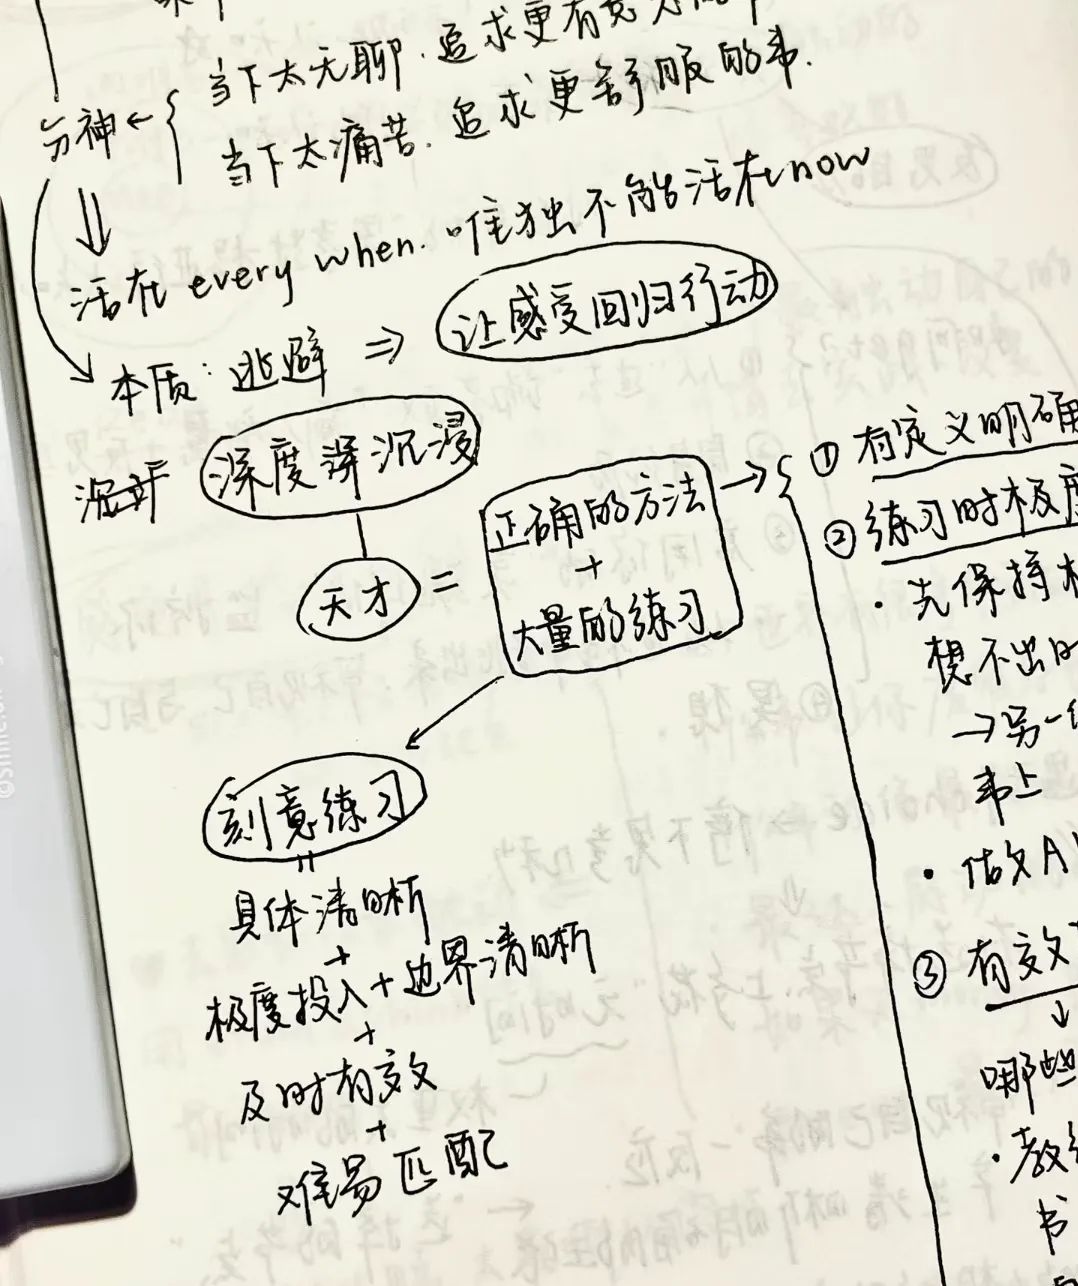 当下太无聊.追求更有意
分神← 当下太痛苦.追求更舒服的事.
活在 every when.唯独不能活在now
本质:逃避 ⇒ 让感受回归行动
深度 沉浸
天才 = 正确的方法
+
大量的练习
→
刻意练习
=
具体清晰
+
极度投入+边界清晰
+
及时有效
+
难易匹配
① 有定义明确
② 练习时极度
·先保持
想不出
→另一
事上
·做
③ 有效
↓
哪些
·教
书